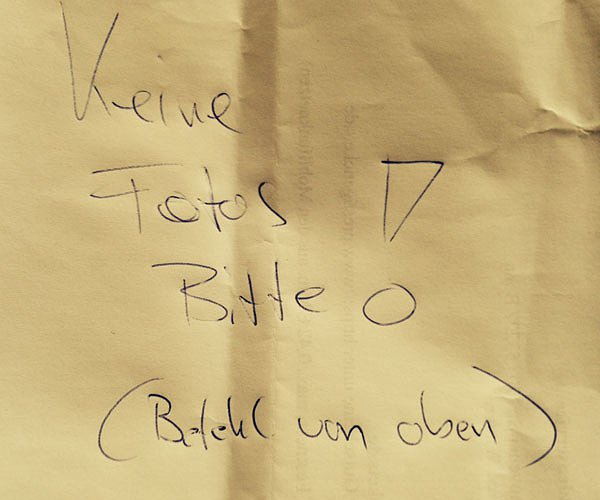 Keine
Fotos !
Bitte
(Befehl von oben)